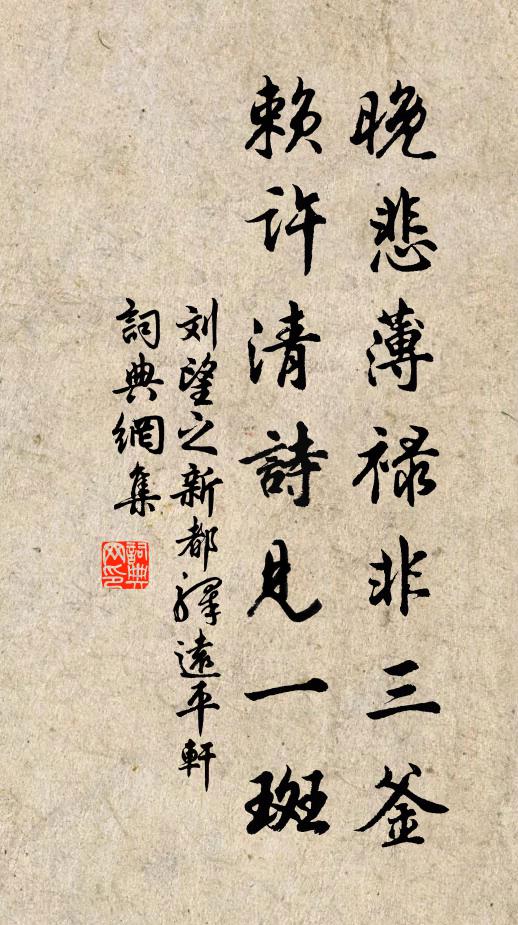 晚悲薄禄非三釜
赖许清詩見一斑
刘望之新都驛遠平軒
詞典網集
詞典网印